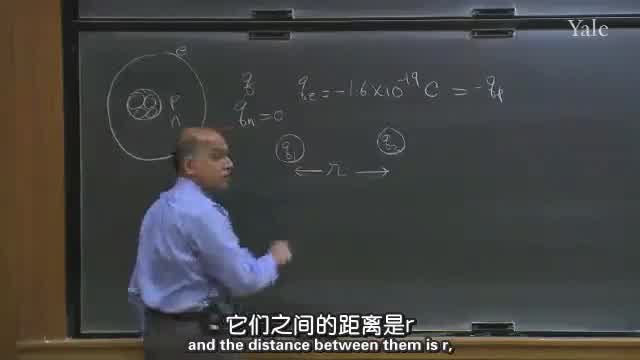 Yale
e
q
q_e = -1.6 × 10^-19 C = -q_p
P
n
q_n = 0
q_1
q_2
← r →
它们之间的距离是r
and the distance between them is r,